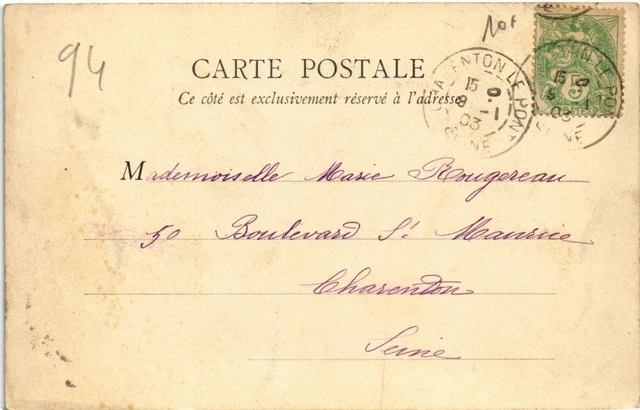 10F
94
CARTE POSTALE
Ce côté est exclusivement réservé à l'adresse
CHARENTON LE PONT
15
9 - 1
03
SEINE
Mademoiselle Marie Rougereau
50 Boulevard St Maurice
Charenton
Seine